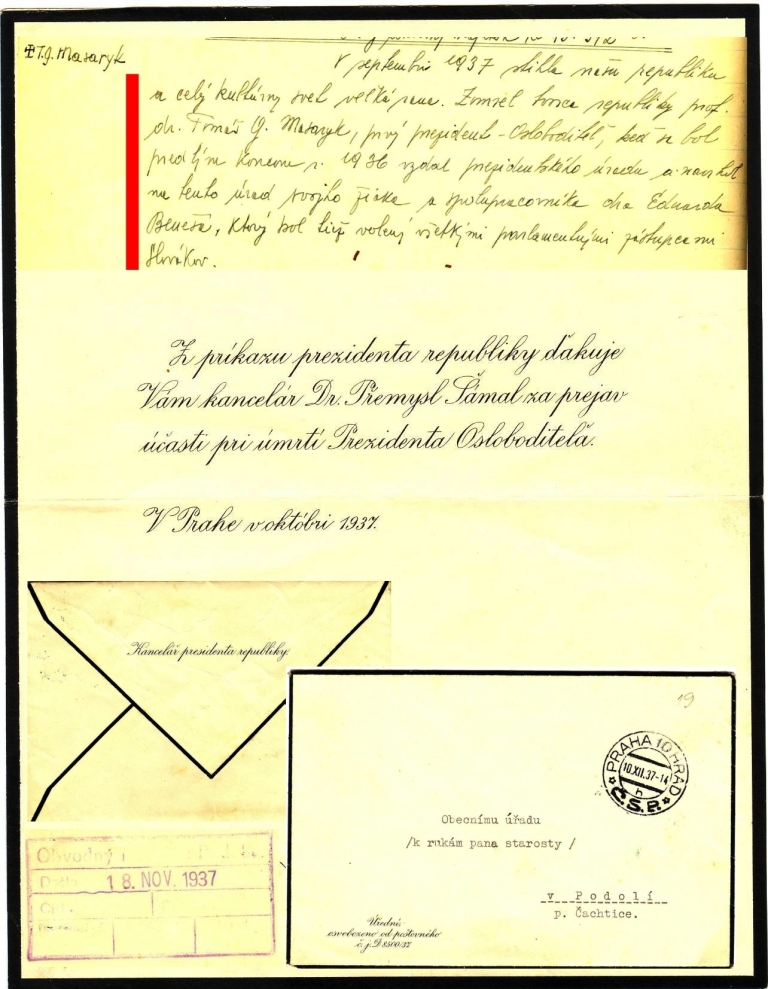 ✠T.G. Masaryk
V septembri 1937 stihla našu republiku
a celý kultúrny svet veľká rana. Zomrel tvorca republiky prof.
dr. Tomáš G. Masaryk, prvý prezident-Osloboditeľ, keď sa bol
predtým koncom r. 1936 vzdal prezidentského úradu a navrhol
na tento úrad svojho žiaka a spolupracovníka dra Eduarda
Beneša, ktorý bol tiež volený všetkými parlamentnými zástupcami
Slovákov.
Z príkazu prezidenta republiky ďakuje
Vám kancelár Dr. Přemysl Šámal za prejav
účasti pri úmrtí Prezidenta Osloboditeľa.
V Prahe v októbri 1937.
Kancelář presidenta republiky.
19
PRAHA 10 HRAD
10.XII.37-14
h
Č.S.P.
Obecnímu úřadu
/k rukám pana starosty /
v Podolí
p. Čachtice.
Úřední:
osvobozeno od poštovného
č.j. D 8500/37
Obvodný
18. NOV. 1937